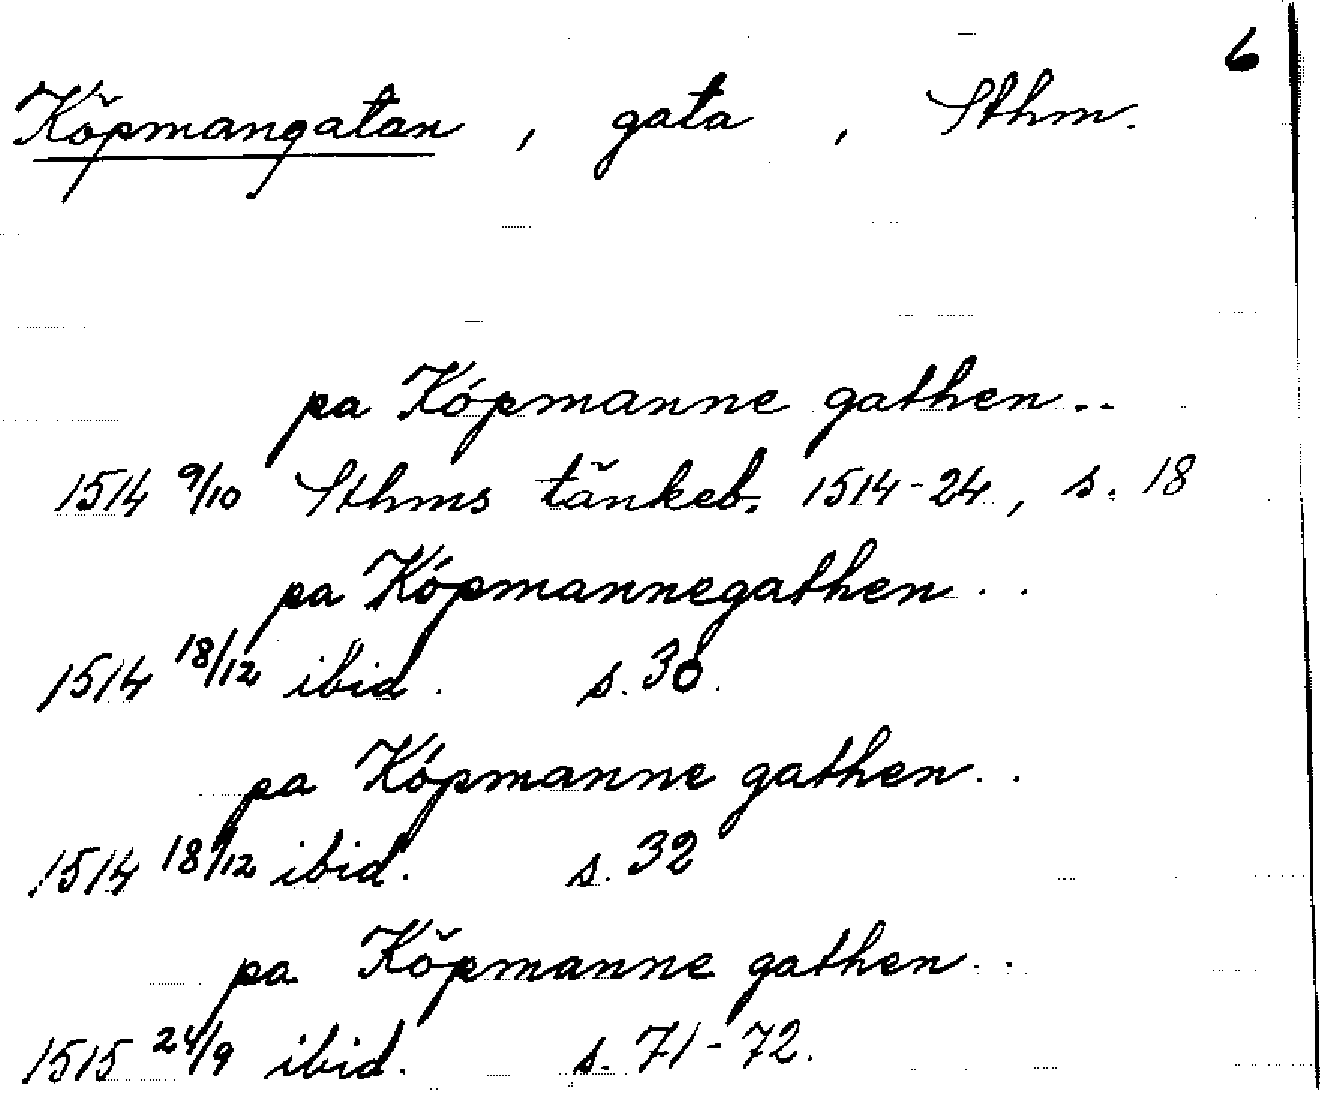 6
Köpmangatan, gata, Sthm.
pa Kópmanne gathen..
1514 9/10 Sthms tänkeb. 1514-24, s. 18
pa Kópmannegathen..
1514 18/12 ibid. s. 30.
pa Kópmanne gathen..
1514 18/12 ibid. s. 32
pa Köpmanne gathen..
1515 24/9 ibid. s. 71-72.